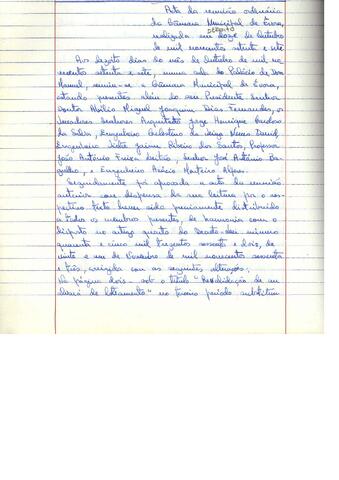 Acta da reunião ordinária
da Câmara Municipal de Évora,
realizada em doze de Outubro
dezoito
de mil novecentos setenta e sete
Aos dezoito dias do mês de Outubro de mil no-
vecentos setenta e sete, numa sala do Palácio de Dom
Manuel, reuniu-se a Câmara Municipal de Évora,
estando presentes, além do seu Presidente Senhor
Doutor Abílio Miguel Joaquim Dias Fernandes, os
Vereadores Senhores Arquitecto Jorge Henrique
da Silva, Engenheiro Celestino David,
Engenheiro Jaime Ribeiro dos Santos, Professor
João António, Senhor José António
, e Engenheiro Acácio Monteiro Alferes.
Seguidamente foi aprovada a acta da reunião
anterior com dispensa da sua leitura por o res-
pectivo texto haver sido previamente distribuido
a todos os membros presentes, de harmonia com o
disposto no artigo quarto do Decreto-Lei número
quarenta e cinco mil trezentos sessenta e dois, de
vinte e um de Novembro de mil novecentos sessenta
e três, corrigida com as seguintes alterações:
Na página dois - sob o título "Revalidação de um
alvará de loteamento" no terceiro período substituir